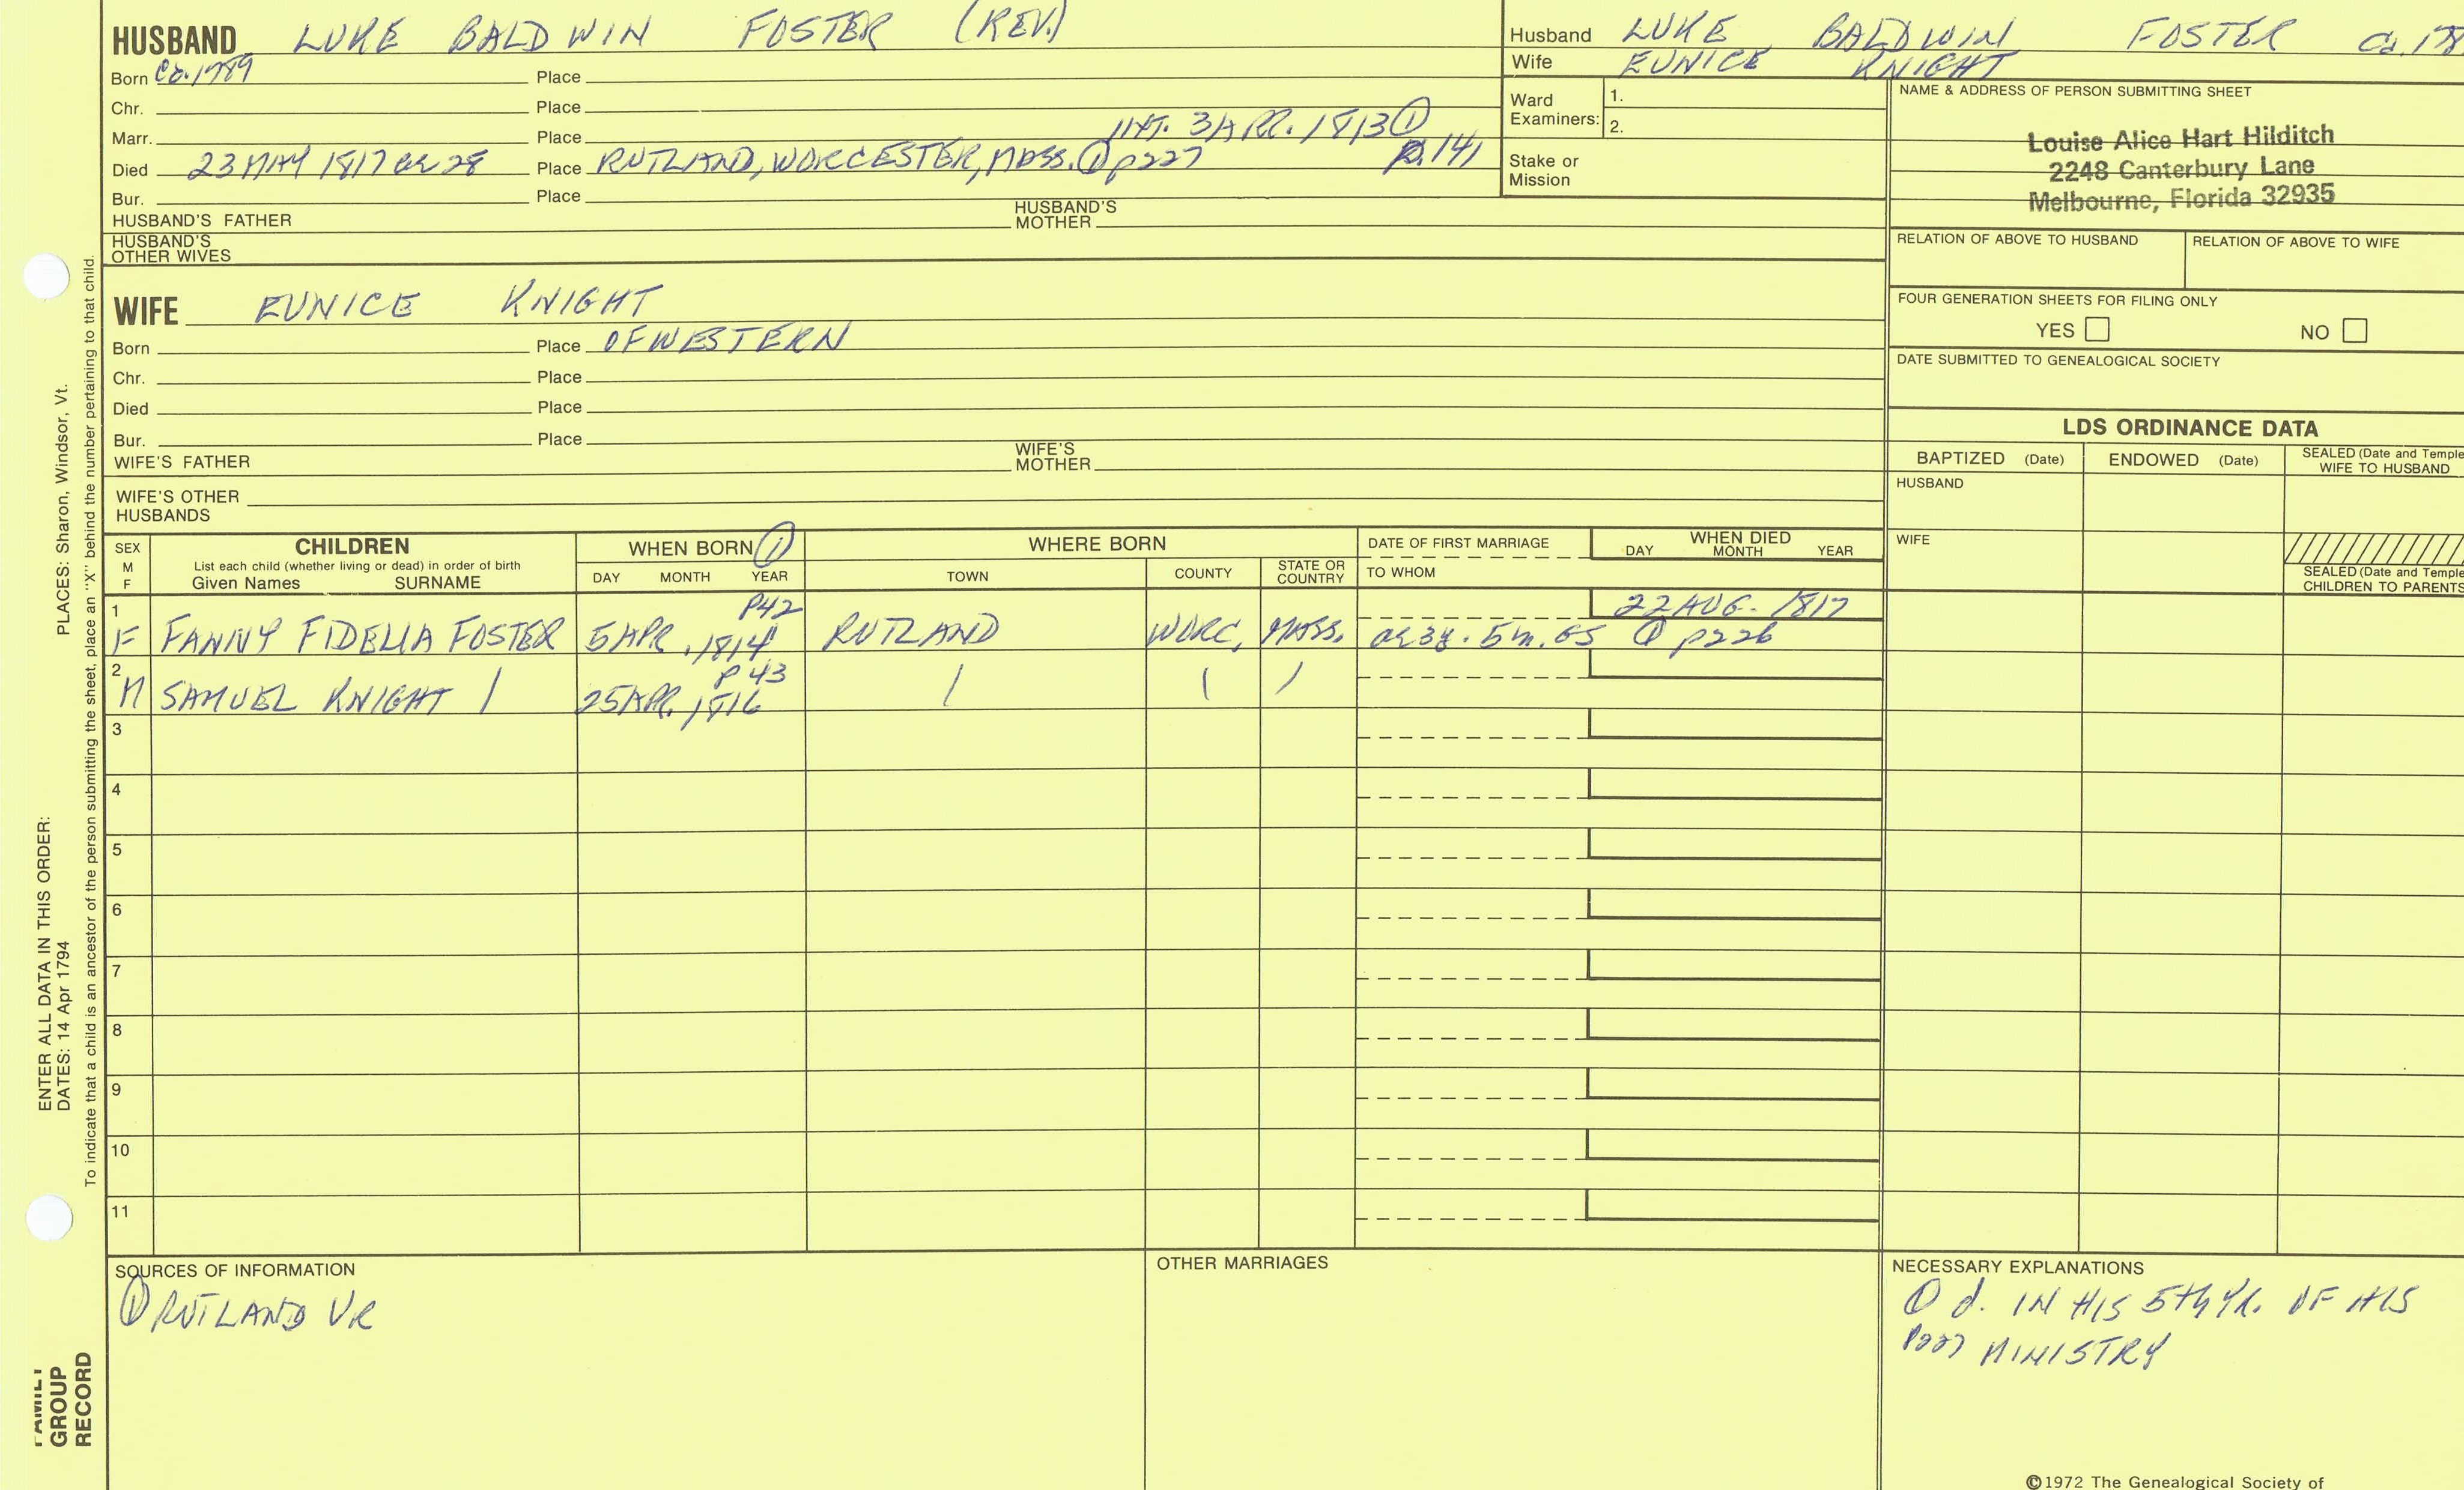 HUSBAND LUKE BALDWIN FOSTER (REV.)
Born Ca. 1789 Place
Chr. Place
Marr. Place INT. 3 APR. 1813 ① p. 141
Died 23 MAY 1817 ae 28 Place RUTLAND, WORCESTER, MASS. ① p227
Bur. Place
HUSBAND'S FATHER HUSBAND'S MOTHER
HUSBAND'S OTHER WIVES
WIFE EUNICE KNIGHT
Born Place OF WESTERN
Chr. Place
Died Place
Bur. Place
WIFE'S FATHER WIFE'S MOTHER
WIFE'S OTHER HUSBANDS
Husband LUKE BALDWIN FOSTER Ca. 178
Wife EUNICE KNIGHT
Ward Examiners: 1.
2.
Stake or Mission
NAME & ADDRESS OF PERSON SUBMITTING SHEET
Louise Alice Hart Hilditch
2248 Canterbury Lane
Melbourne, Florida 32935
RELATION OF ABOVE TO HUSBAND RELATION OF ABOVE TO WIFE
FOUR GENERATION SHEETS FOR FILING ONLY
YES NO
DATE SUBMITTED TO GENEALOGICAL SOCIETY
LDS ORDINANCE DATA
BAPTIZED (Date) ENDOWED (Date) SEALED (Date and Temple
WIFE TO HUSBAND
HUSBAND
WIFE
SEALED (Date and Temple
CHILDREN TO PARENTS
SEX M F CHILDREN WHEN BORN ① WHERE BORN DATE OF FIRST MARRIAGE WHEN DIED
List each child (whether living or dead) in order of birth
Given Names SURNAME DAY MONTH YEAR TOWN COUNTY STATE OR COUNTRY TO WHOM DAY MONTH YEAR
1 P42 22 AUG. 1817
F FANNY FIDELIA FOSTER 5 APR. 1814 RUTLAND WORC. MASS. ae 3y. 5m. GS ① p226
2 P43
M SAMUEL KNIGHT / 25 APR. 1816 / / /
3
4
5
6
7
8
9
10
11
SOURCES OF INFORMATION
① RUTLAND VR
OTHER MARRIAGES
NECESSARY EXPLANATIONS
① d. IN HIS 5th YR. OF HIS
P227 MINISTRY
©1972 The Genealogical Society of
PLACES: Sharon, Windsor, Vt.
ENTER ALL DATA IN THIS ORDER:
DATES: 14 Apr 1794
To indicate that a child is an ancestor of the person submitting the sheet, place an "X" behind the number pertaining to that child.
FAMILY
GROUP
RECORD